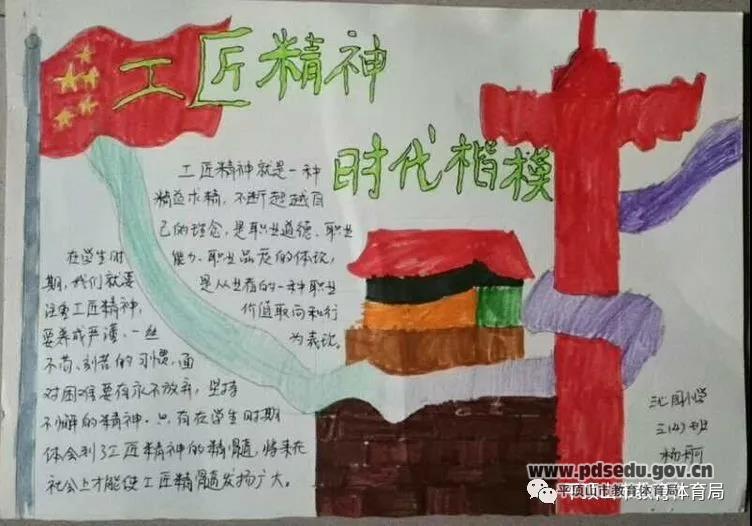 工匠精神
时代楷模
工匠精神就是一种
精益求精,不断超越自
己的理念,是职业道德、职业
能力、职业品质的体现,
是从业者的一种职业
价值取向和行
为表现。
在学生时
期,我们就要
注重工匠精神,
要养成严谨、一丝
不苟、刻苦的习惯,面
对困难要有永不放弃,坚持
不懈的精神。只有在学生时期
体会到了工匠精神的精髓,将来在
社会上才能使工匠精髓发扬广大。
沁园小学
三(4)班
杨珂
www.pdsedu.gov.cn
平顶山市教育体育局
平顶山市教育体育局